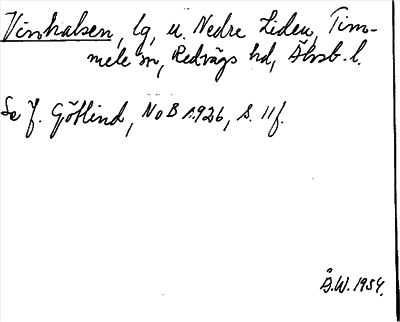 Vinhalsen, lg, u. Nedre Liden, Tim-
mele sn, Redvägs hd, Älvsb. l.
Se J. Götlind, NoB 1926, s. 11f.
Å.W. 1954.